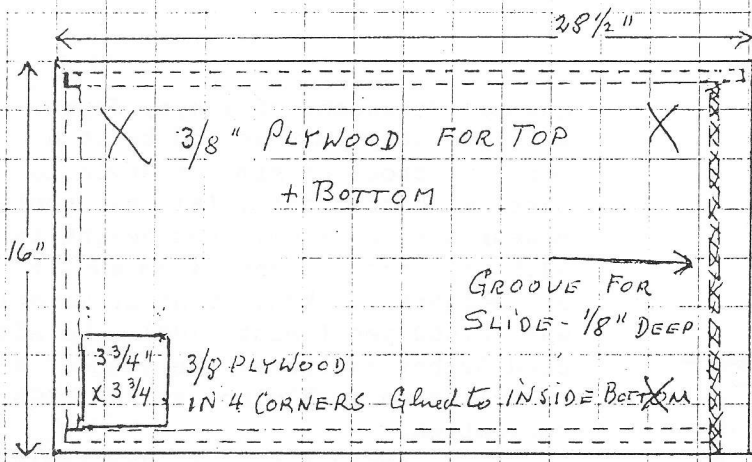 28 1/2"
3/8" PLYWOOD FOR TOP
+ BOTTOM
16"
GROOVE FOR
SLIDE - 1/8" DEEP
3 3/4"
x 3 3/4
3/8 PLYWOOD
IN 4 CORNERS Glued to INSIDE BOTTOM